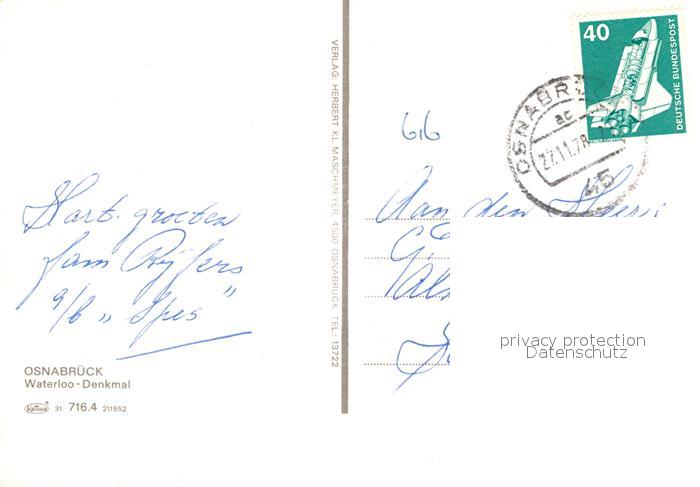 Hart. groeten
fam Rijfers
a/b „Spes”
OSNABRÜCK
Waterloo-Denkmal
Krüger 31 716.4 211852
VERLAG: HERBERT KL. MASCHMEYER, 4500 OSNABRÜCK, TEL.: 13722
616
40
DEUTSCHE BUNDESPOST
OSNABRÜ
ac
27.11.78
45
Aan den Heer:
G.
privacy protection
Datenschutz